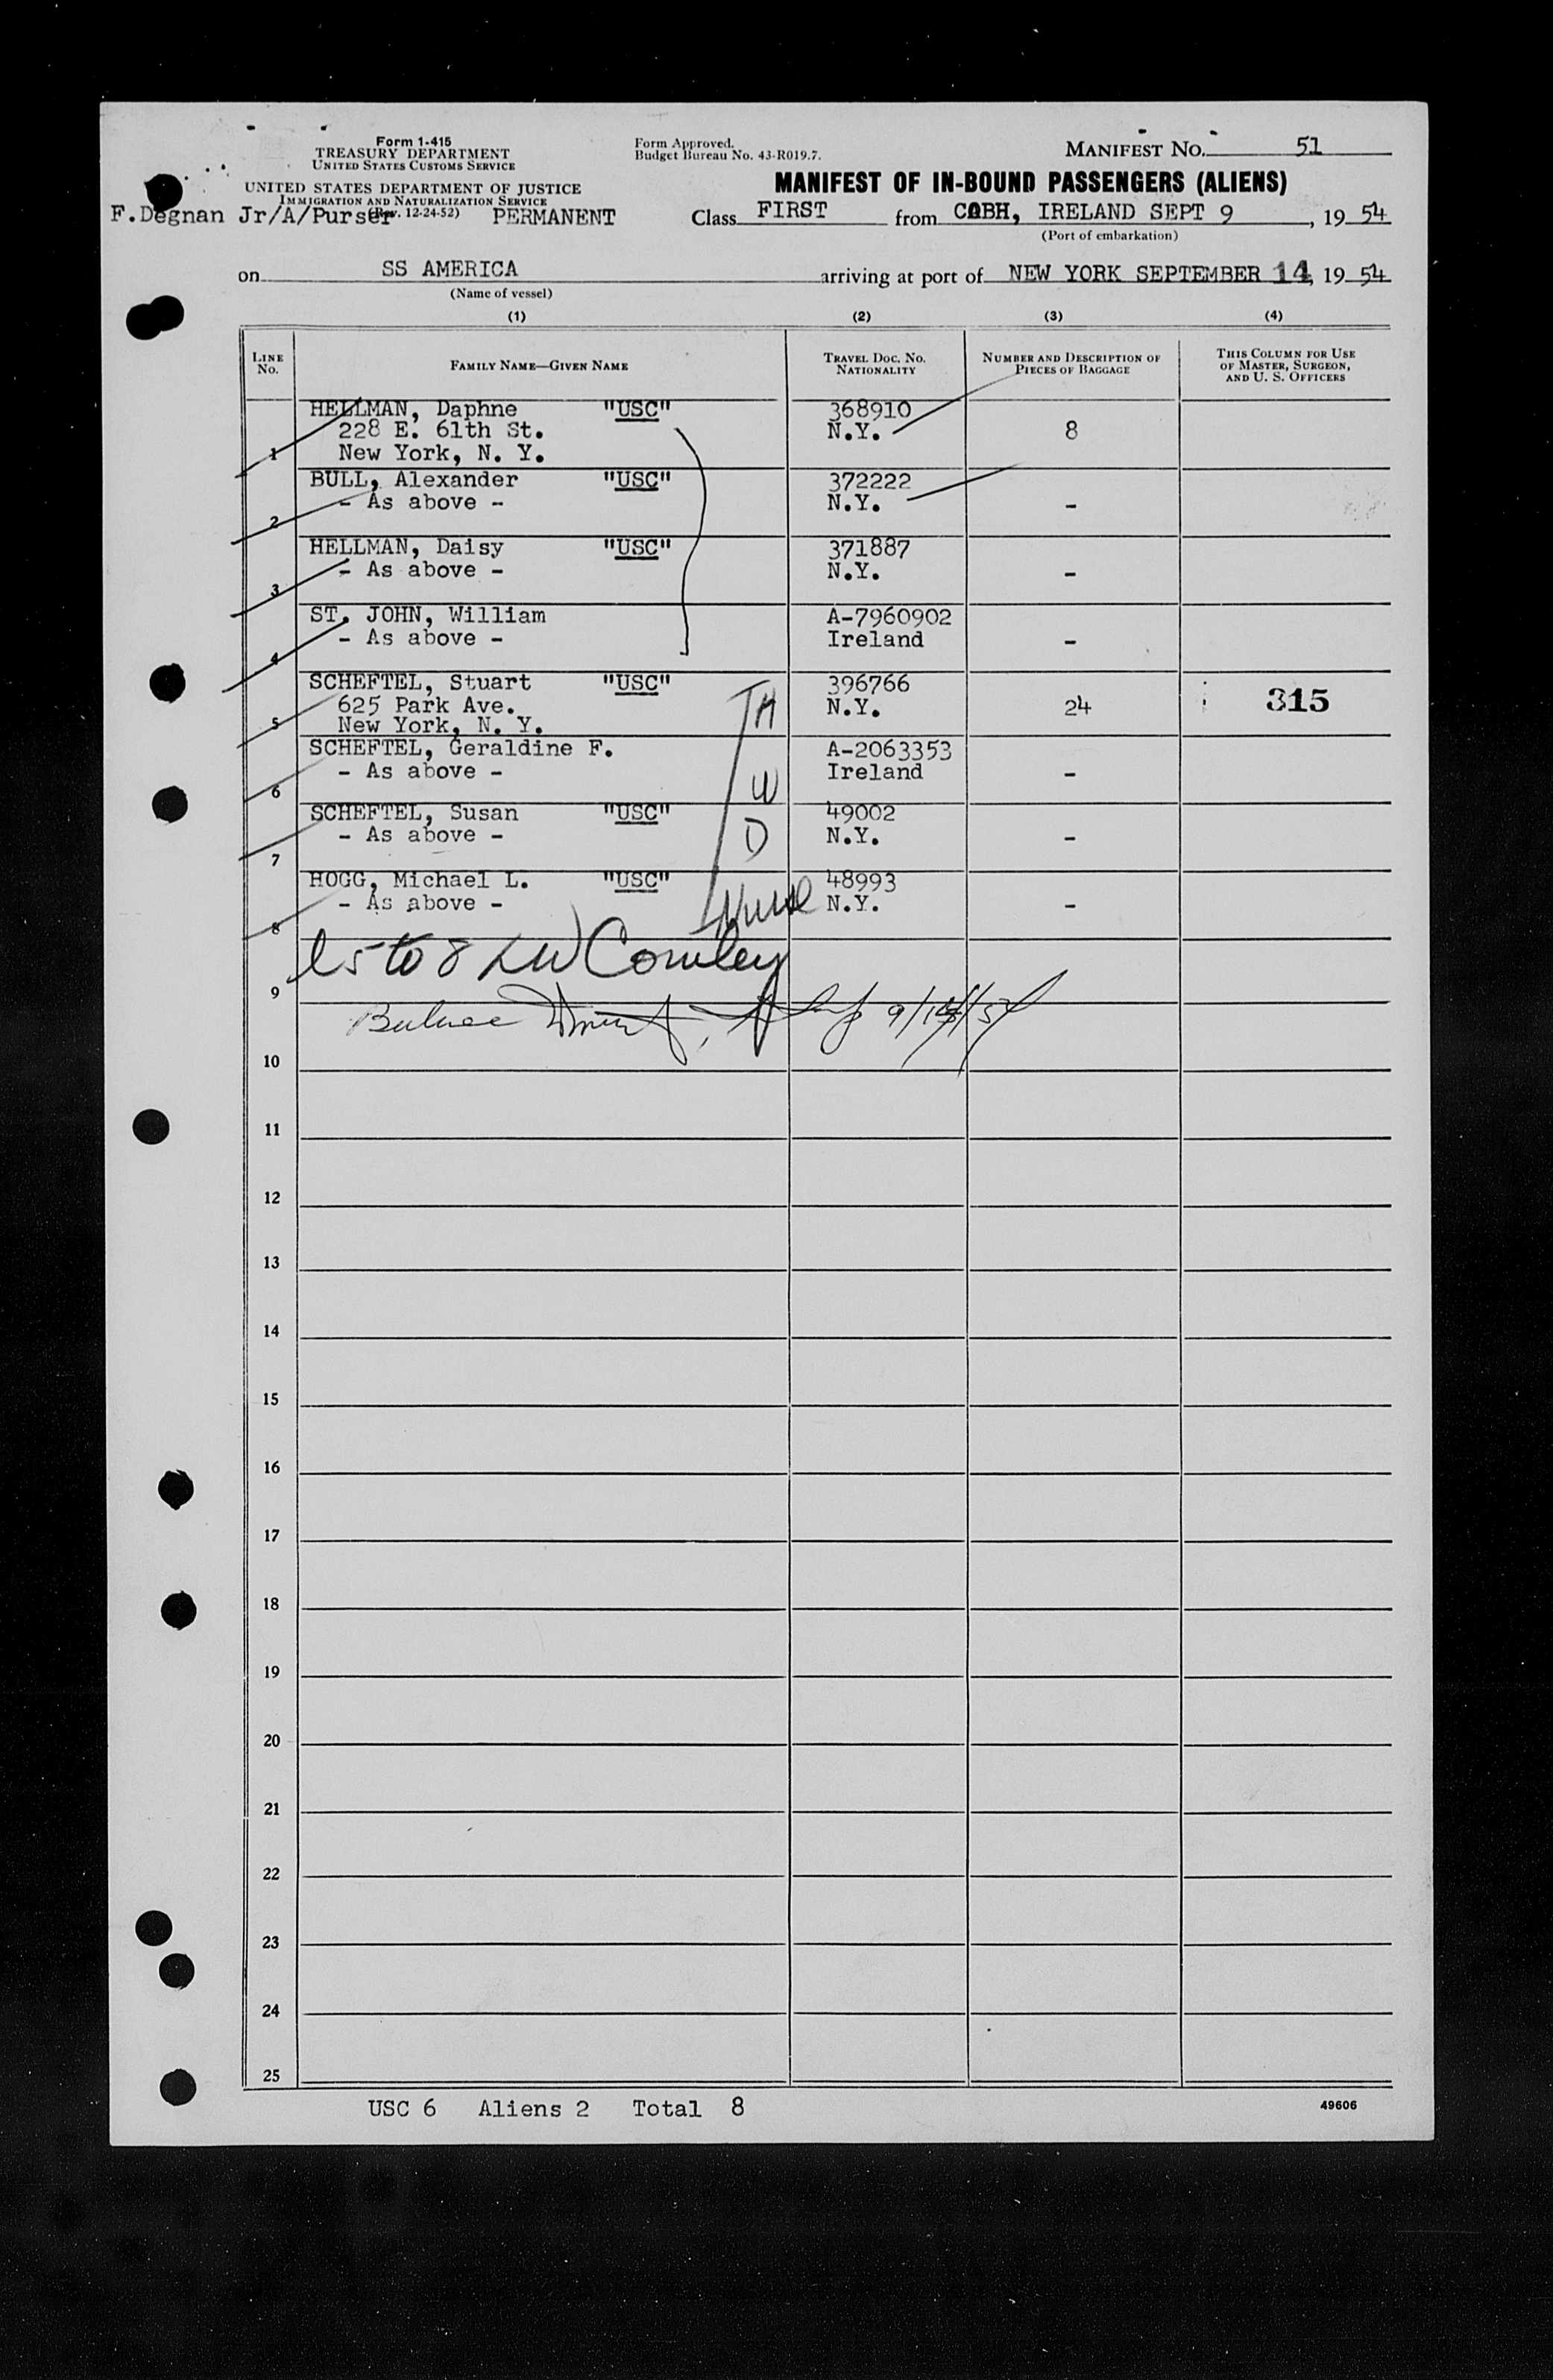 Form 1-415
TREASURY DEPARTMENT
UNITED STATES CUSTOMS SERVICE
UNITED STATES DEPARTMENT OF JUSTICE
IMMIGRATION AND NATURALIZATION SERVICE
(Rev. 12-24-52)
F.Degnan Jr/A/Purser PERMANENT
Form Approved.
Budget Bureau No. 43-R019.7.
MANIFEST NO. 51
MANIFEST OF IN-BOUND PASSENGERS (ALIENS)
Class FIRST from COBH, IRELAND SEPT 9, 19 54
(Port of embarkation)
on SS AMERICA arriving at port of NEW YORK SEPTEMBER 14, 19 54
(Name of vessel)
(1) (2) (3) (4)
LINE NO. FAMILY NAME—GIVEN NAME TRAVEL DOC. NO. NATIONALITY NUMBER AND DESCRIPTION OF PIECES OF BAGGAGE THIS COLUMN FOR USE OF MASTER, SURGEON, AND U. S. OFFICERS
HELLMAN, Daphne "USC" 368910
228 E. 61th St. N.Y. 8
1 New York, N. Y.
BULL, Alexander "USC" 372222
2 - As above - N.Y. -
HELLMAN, Daisy "USC" 371887
3 - As above - N.Y. -
ST. JOHN, William A-7960902
4 - As above - Ireland -
SCHEFTEL, Stuart "USC" 396766
625 Park Ave. H N.Y. 24 315
5 New York, N. Y.
SCHEFTEL, Geraldine F. A-2063353
6 - As above - W Ireland -
SCHEFTEL, Susan "USC" 49002
7 - As above - D N.Y. -
HOGG, Michael L. "USC" 48993
8 - As above - Nurse N.Y. -
5 to 8 Cowley
9
9/14/54
10
11
12
13
14
15
16
17
18
19
20
21
22
23
24
25
USC 6 Aliens 2 Total 8
49606